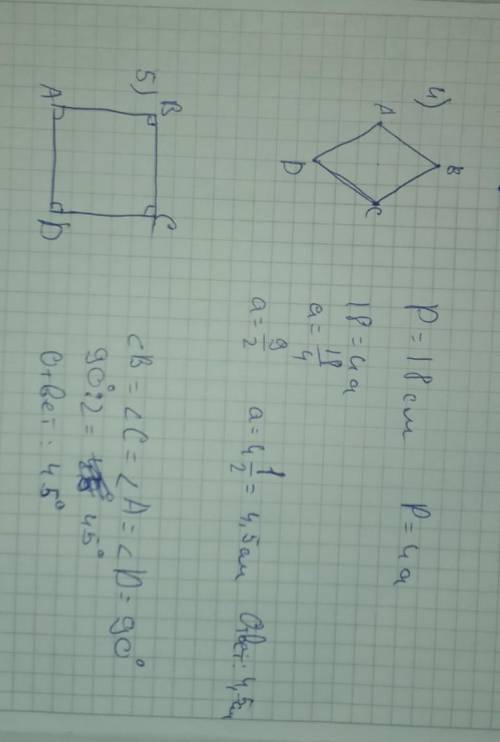 4)
A
B
C
D
P = 18 см P = 4a
18 = 4a
a = 18/4
a = 9/2 a = 4 1/2 = 4,5 см Ответ: 4,5 см
5)
B C
A D
∠B = ∠C = ∠A = ∠D = 90°
90°:2 = 45°
Ответ: 45°